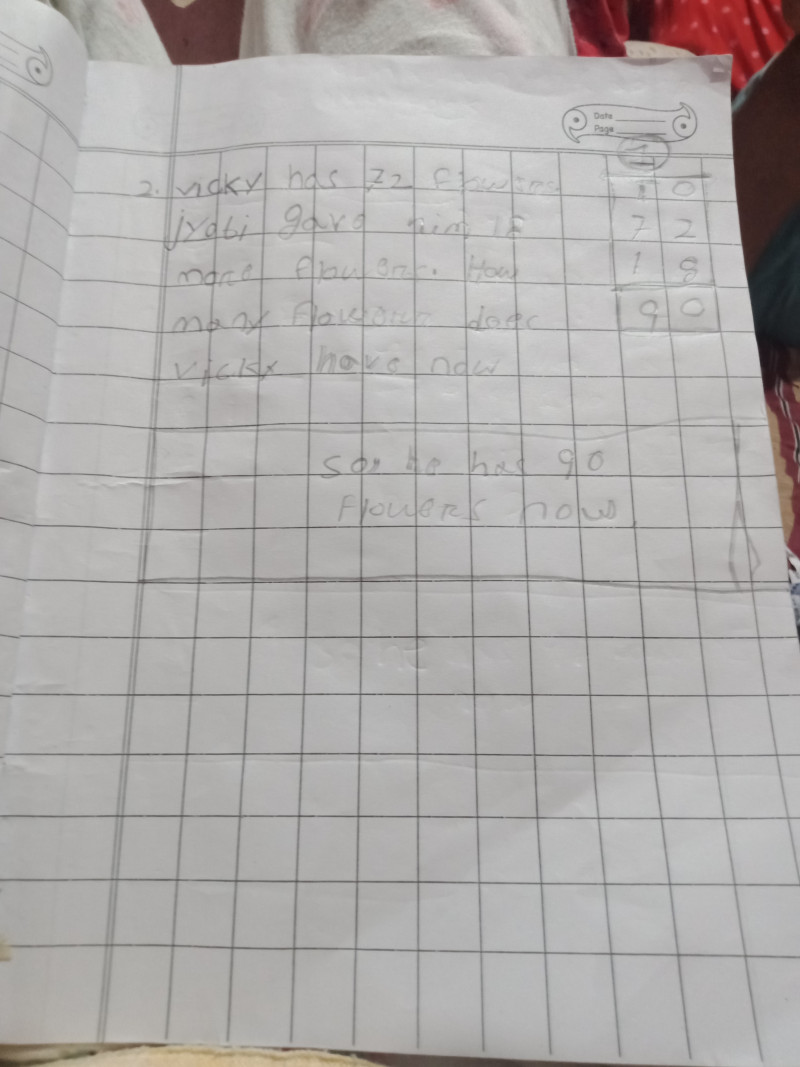 Date
Page
1
T O
2. vicky has 72 flowers
7 2
jyoti gave him 18
1 8
more flowers. How
9 0
many flowers does
vicky have now
so, he has 90
flowers now.